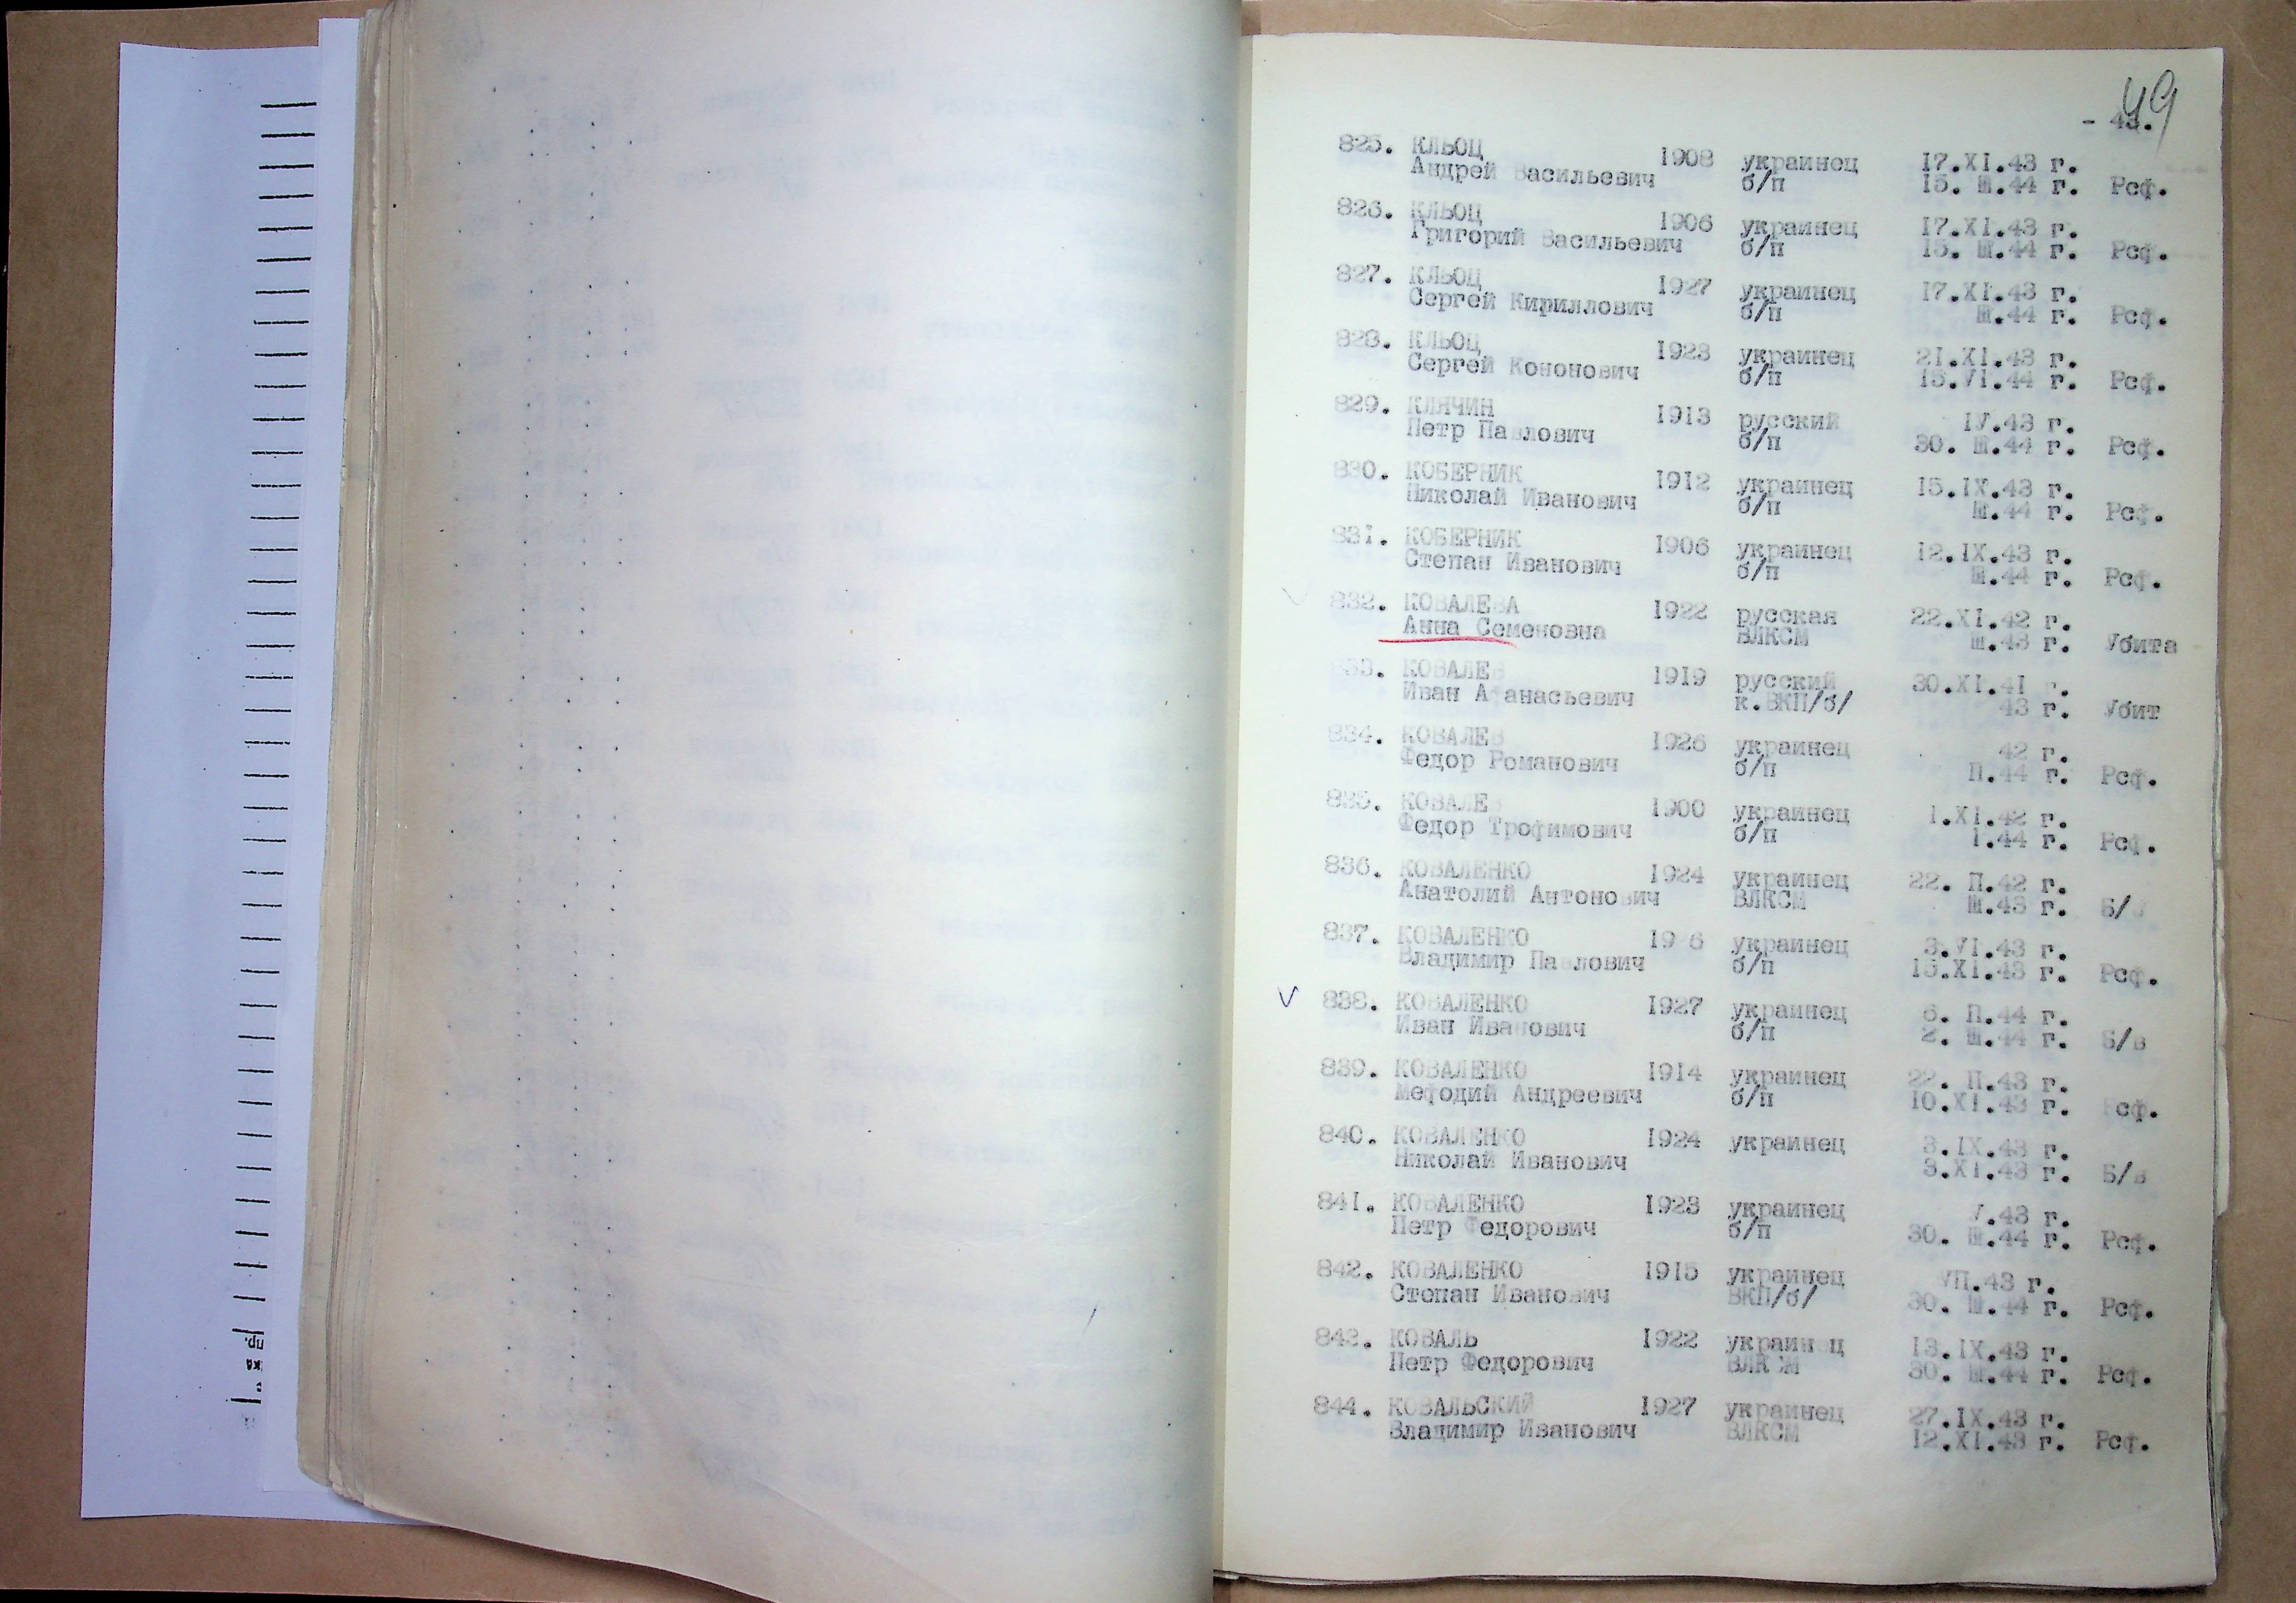 49
825. КЛЬОЦ 1908 украинец 17.XI.43 г.
Андрей Васильевич б/п 15. Ш.44 г. Рсф.
826. КЛЬОЦ 1906 украинец 17.XI.43 г.
Григорий Васильевич б/п 15. Ш.44 г. Рсф.
827. КЛЬОЦ 1927 украинец 17.XI.43 г.
Сергей Кириллович б/п Ш.44 г. Рсф.
828. КЛЬОЦ 1923 украинец 21.XI.43 г.
Сергей Кононович б/п 15.VI.44 г. Рсф.
829. КЛЯЧИН 1913 русский IУ.43 г.
Петр Павлович б/п 30. Ш.44 г. Рсф.
830. КОБЕРНИК 1912 украинец 15.IX.43 г.
Николай Иванович б/п Ш.44 г. Рсф.
831. КОБЕРНИК 1906 украинец 12.IX.43 г.
Степан Иванович б/п Ш.44 г. Рсф.
832. КОВАЛЕВА 1922 русская 22.XI.42 г.
Анна Семеновна ВЛКСМ Ш.43 г. Убита
833. КОВАЛЕВ 1919 русский 30.XI.41 г.
Иван Афанасьевич к.ВКП/б/ 43 г. Убит
834. КОВАЛЕВ 1926 украинец 42 г.
Федор Романович б/п П.44 г. Рсф.
835. КОВАЛЕВ 1900 украинец 1.XI.42 г.
Федор Трофимович б/п 1.44 г. Рсф.
836. КОВАЛЕНКО 1924 украинец 22. П.42 г.
Анатолий Антонович ВЛКСМ Ш.43 г. Б/в
837. КОВАЛЕНКО украинец 3.VI.43 г.
Владимир Павлович б/п 15.XI.43 г. Рсф.
838. КОВАЛЕНКО 1927 украинец 6. П.44 г.
Иван Иванович б/п 2. Ш.44 г. Б/в
839. КОВАЛЕНКО 1914 украинец 22. П.43 г.
Мефодий Андреевич б/п 10.XI.43 г. Рсф.
840. КОВАЛЕНКО 1924 украинец 3.IX.43 г.
Николай Иванович 3.XI.43 г. Б/в
841. КОВАЛЕНКО 1923 украинец V.43 г.
Петр Федорович б/п 30. Ш.44 г. Рсф.
842. КОВАЛЕНКО 1915 украинец УП.43 г.
Степан Иванович ВКП/б/ 30. Ш.44 г. Рсф.
843. КОВАЛЬ 1922 украинец 13.IX.43 г.
Петр Федорович ВЛКСМ 30. Ш.44 г. Рсф.
844. КОВАЛЬСКИЙ 1927 украинец 27.IX.43 г.
Владимир Иванович ВЛКСМ 12.XI.43 г. Рсф.